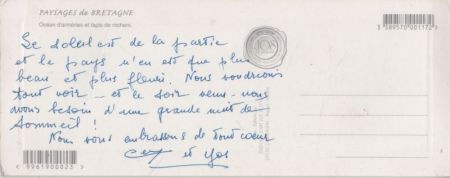 PAYSAGES de BRETAGNE
Océan d'arméries et tapis de rochers.
Le soleil est de la partie
et le pays n'en est que plus
beau et plus fleuri. Nous voudrions
tout voir - et le soir venu - nous
avons besoin d'une grande nuit de
sommeil !
Nous vous embrassons de tout coeur
et
9961900023
3 589570 001172